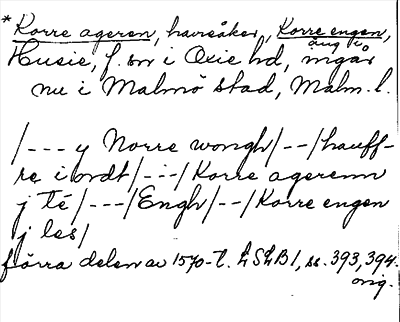 * Korre ageren, havreåker, Korre engen,
äng i
Husie, f. sn i Oxie hd, ingår
nu i Malmö stad, Malm. l.
/---y Norre wongh/--/hauff-
re i ordt/---/Korre agerenn
j té/---/Engh/--/Korre engen
j les/
förra delen av 1570-t. LSLB 1, ss. 393, 394.
orig.